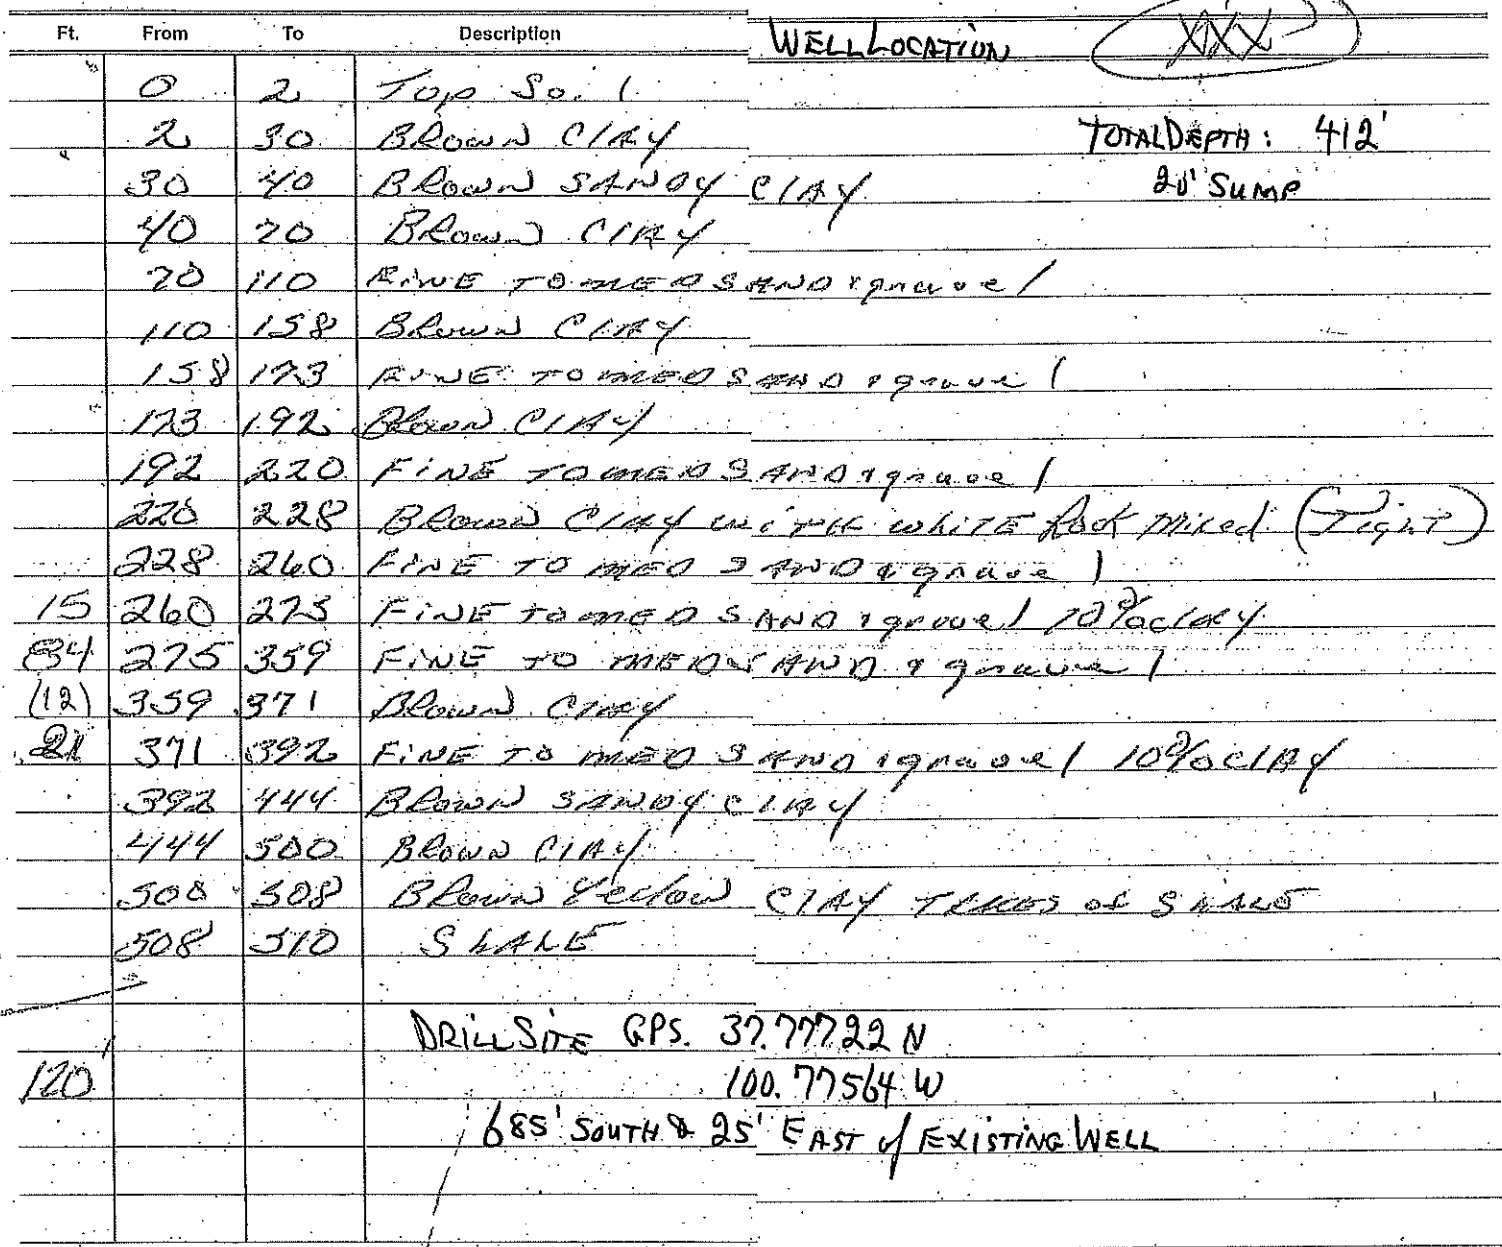 Ft. From To Description WELL LOCATION XXX
0 2 Top Soil
2 30 BROWN CLAY TOTAL DEPTH: 412'
30 40 BROWN SANDY CLAY 20' SUMP
40 70 BROWN CLAY
70 110 FINE TO MED SAND & gravel
110 158 BROWN CLAY
158 173 FINE TO MED SAND & gravel
173 192 BROWN CLAY
192 220 FINE TO MED SAND & gravel
220 228 BROWN CLAY WITH WHITE Rock Mixed (Tight)
228 260 FINE TO MED SAND & gravel
15 260 275 FINE TO MED SAND & gravel 10% CLAY
84 275 359 FINE TO MED SAND & gravel
(12) 359 371 BROWN CLAY
21 371 392 FINE TO MED SAND & gravel 10% CLAY
392 444 BROWN SANDY CLAY
444 500 BROWN CLAY
500 508 BROWN Yellow CLAY TRACES of SHALE
508 510 SHALE
DRILL SITE GPS. 37.77722 N
120' 100.77564 W
685' SOUTH & 25' EAST of EXISTING WELL